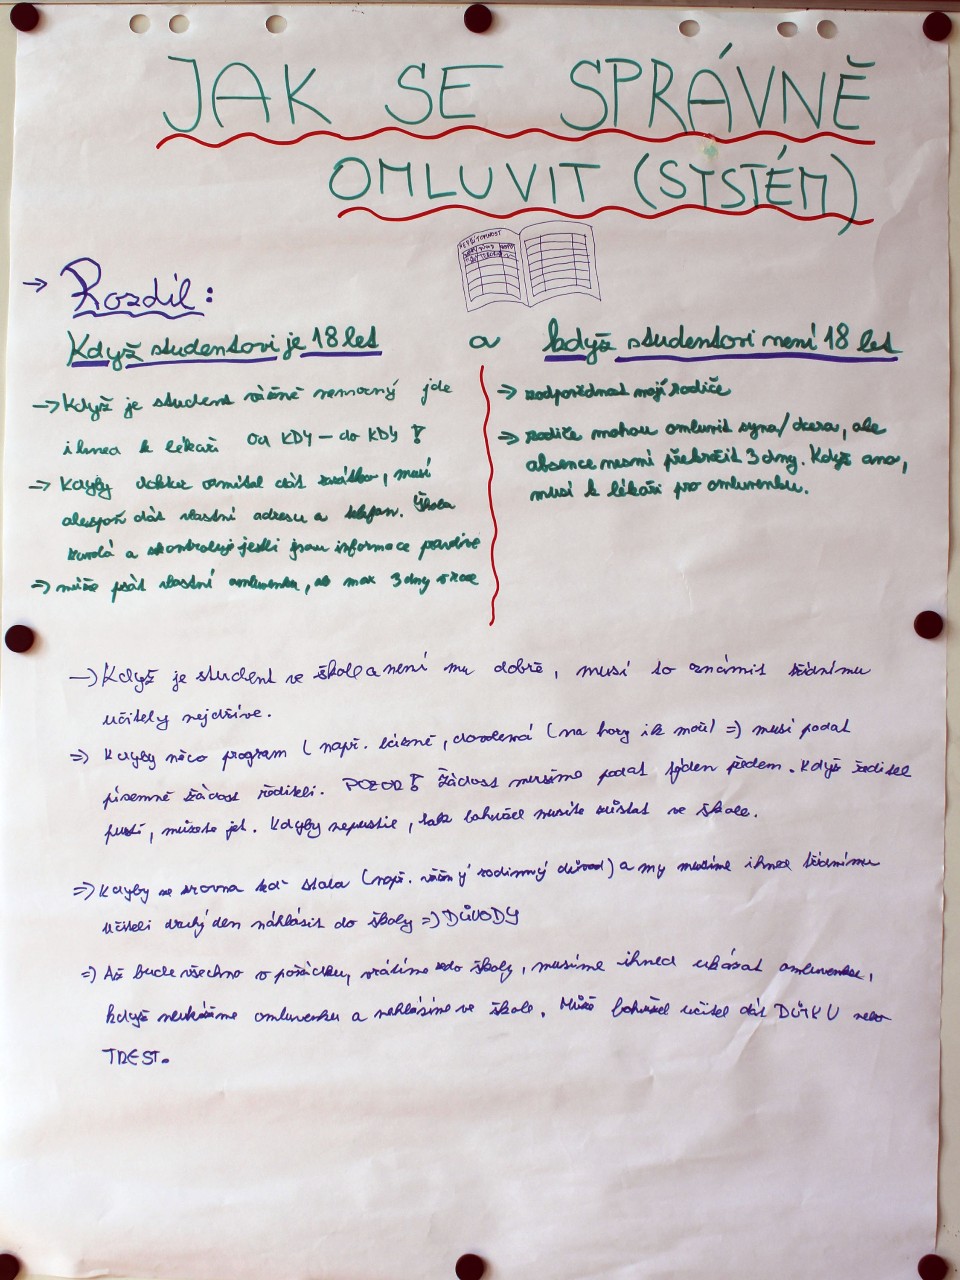 JAK SE SPRÁVNĚ
OMLUVIT (SYSTÉM)
→ Rozdíl:
Když studentovi je 18 let a když studentovi není 18 let
→ Když je student vážně nemocný jde
ihned k lékaři Od KDY – do KDY !
→ Kdyby doktor odmítal dát, musí
alespoň dát vlastní adresu a telefon. Škola
a skontroluje jestli jsou informace pravdivé
⇒ může psát vlastní omluvenku, ale max 3 dny
→ zodpovědnost mají rodiče
→ rodiče mohou omluvit syna/dceru, ale
absence nesmí překročit 3 dny. Když ano,
musí k lékaři pro omluvenku.
→ Když je student ve škole a není mu dobře, musí to oznámit třídnímu
učitely nejdříve.
⇒ Kdyby něco program (např. lázně, dovolená (na hory ik moře) ⇒ musí podat
písemně žádost řediteli. POZOR! Žádost musíme podat týden předem. Když ředitel
pustí, můžete jet. Kdyby nepustil, tak bohužel musíte zůstat ve škole.
⇒ Kdyby se zrovna stala (např. vážný rodinný důvod) a my musíme ihned třídnímu
učiteli druhý den náhlásit do školy ⇒ DŮVODY
⇒ Až bude všechno v pořádku, vrátíme do školy, musíme ihned ukázat omluvenku,
když neukážeme omluvenku a nahlásíme ve škole. Může bohužel učitel dát DŮTKU nebo
TREST.